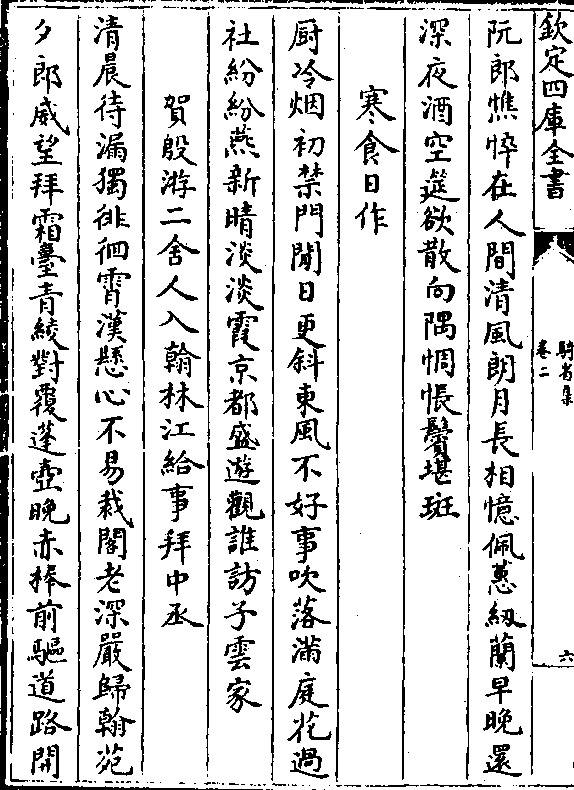 欽定四庫全書
騎省集
卷二
六
阮郎憔悴在人間清風朗月長相憶佩蕙紉蘭早晚還
深夜酒空筵欲散向隅惆悵鬢堪斑
寒食日作
厨冷烟初禁門閒日更斜東風不好事吹落滿庭花過
社紛紛燕新晴淡淡霞京都盛遊觀誰訪子雲家
賀殷游二舍人入翰林江給事拜中丞
清晨待漏獨徘徊霄漢懸心不易裁閣老深嚴歸翰苑
夕郎威望拜霜臺青綾對覆蓬壺晚赤捧前驅道路開